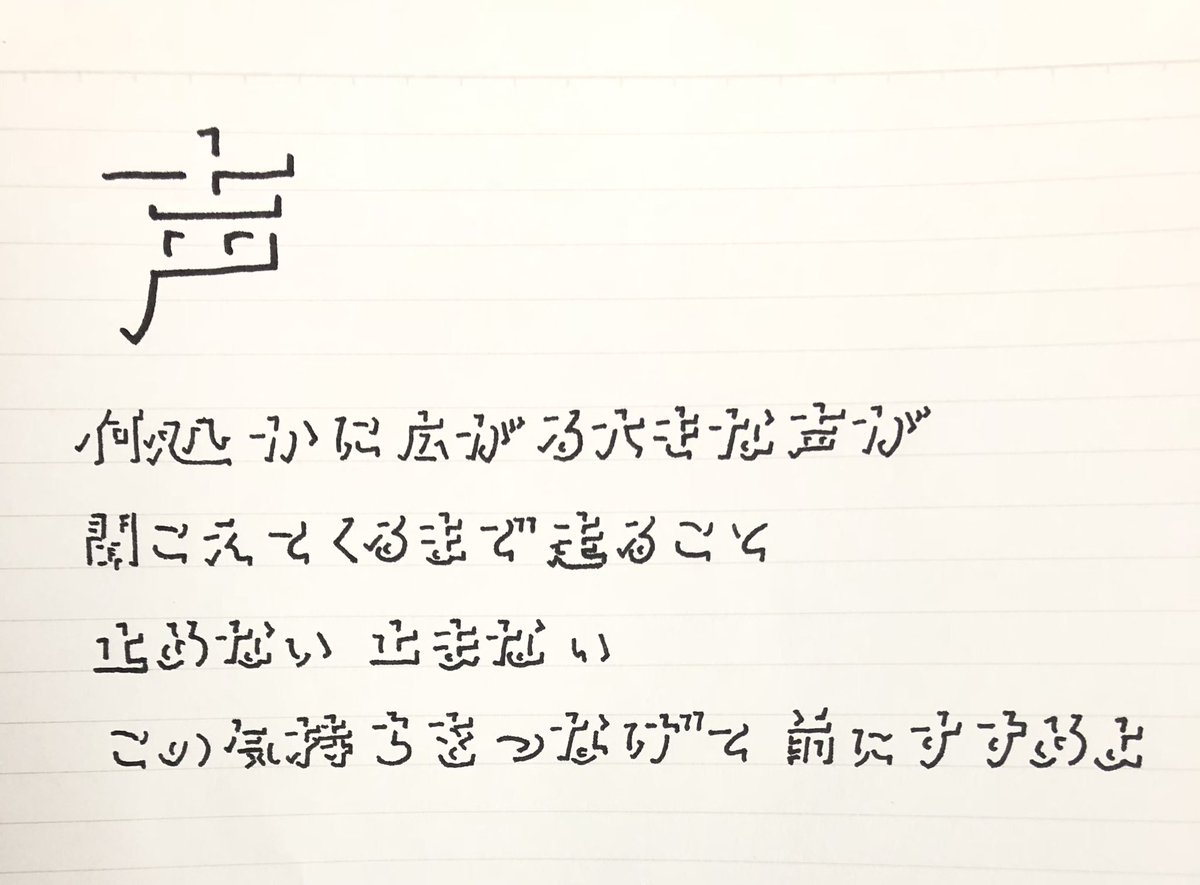 声
何処かに広がる大きな声が
聞こえてくるまで進ること
止めない 止まない
この気持ちをつなげて 前にすすめよ